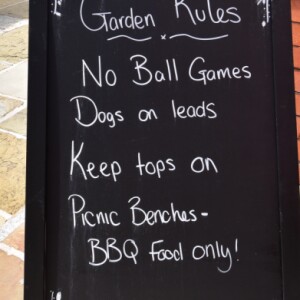 Garden Rules
No Ball Games
Dogs on leads
Keep tops on
Picnic Benches -
BBQ Food only!